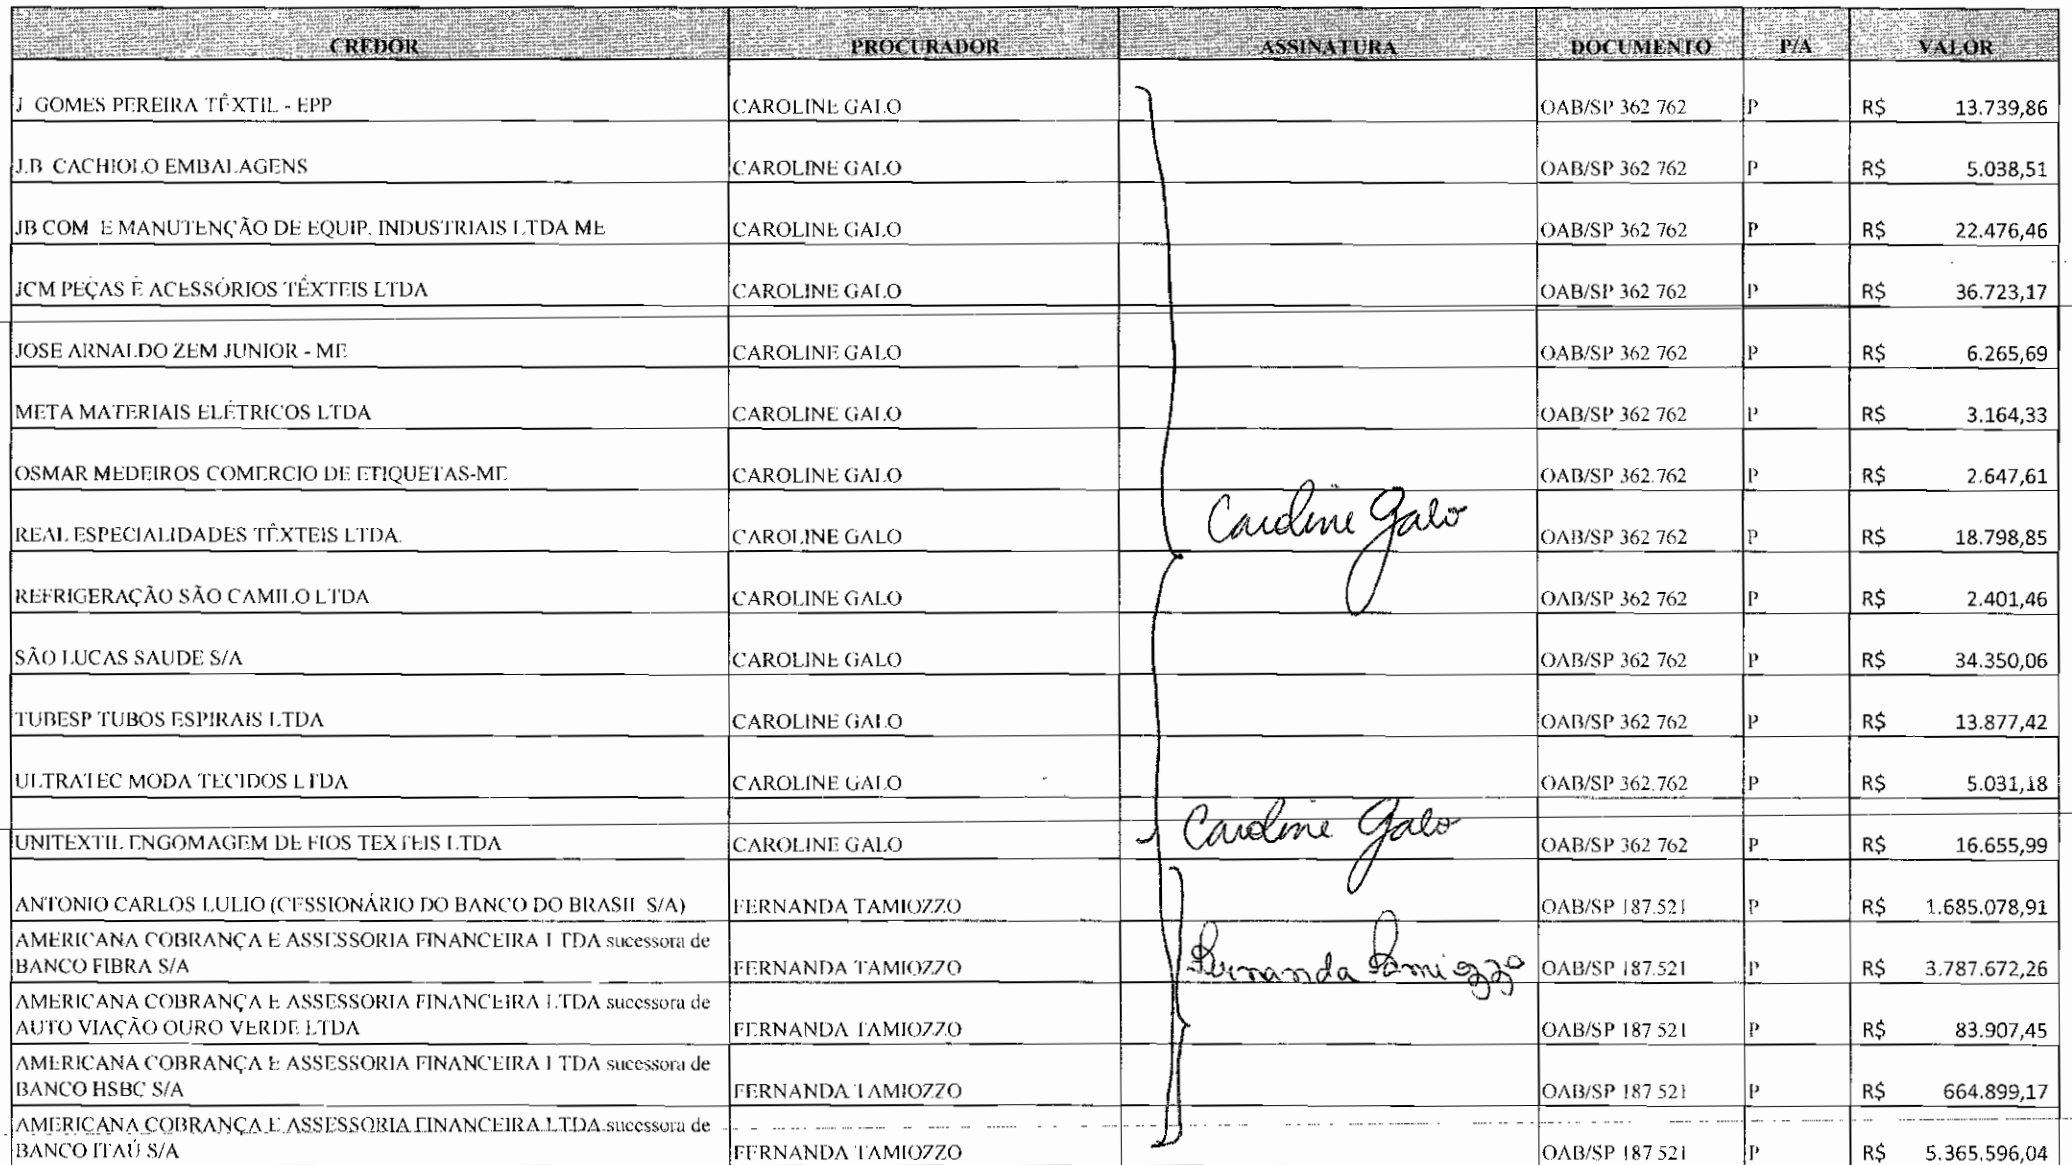 CREDOR PROCURADOR ASSINATURA DOCUMENTO P/A VALOR
J GOMES PEREIRA TÊXTIL - EPP CAROLINE GALO OAB/SP 362 762 P R$ 13.739,86
J.B CACHIOLO EMBALAGENS CAROLINE GALO OAB/SP 362 762 P R$ 5.038,51
JB COM E MANUTENÇÃO DE EQUIP. INDUSTRIAIS LTDA ME CAROLINE GALO OAB/SP 362 762 P R$ 22.476,46
JCM PEÇAS E ACESSÓRIOS TÊXTEIS LTDA CAROLINE GALO OAB/SP 362 762 P R$ 36.723,17
JOSE ARNALDO ZEM JUNIOR - ME CAROLINE GALO OAB/SP 362 762 P R$ 6.265,69
META MATERIAIS ELÉTRICOS LTDA CAROLINE GALO OAB/SP 362 762 P R$ 3.164,33
OSMAR MEDEIROS COMERCIO DE ETIQUETAS-ME CAROLINE GALO OAB/SP 362.762 P R$ 2.647,61
REAL ESPECIALIDADES TÊXTEIS LTDA. CAROLINE GALO Caroline Galo OAB/SP 362 762 P R$ 18.798,85
REFRIGERAÇÃO SÃO CAMILO LTDA CAROLINE GALO OAB/SP 362 762 P R$ 2.401,46
SÃO LUCAS SAUDE S/A CAROLINE GALO OAB/SP 362 762 P R$ 34.350,06
TUBESP TUBOS ESPIRAIS LTDA CAROLINE GALO OAB/SP 362 762 P R$ 13.877,42
ULTRATEC MODA TECIDOS LTDA CAROLINE GALO OAB/SP 362.762 P R$ 5.031,18
UNITEXTIL ENGOMAGEM DE FIOS TEXTEIS LTDA CAROLINE GALO Caroline Galo OAB/SP 362 762 P R$ 16.655,99
ANTONIO CARLOS LULIO (CESSIONÁRIO DO BANCO DO BRASIL S/A) FERNANDA TAMIOZZO OAB/SP 187.521 P R$ 1.685.078,91
AMERICANA COBRANÇA E ASSESSORIA FINANCEIRA LTDA sucessora de
BANCO FIBRA S/A FERNANDA TAMIOZZO Fernanda Tamiozzo OAB/SP 187.521 P R$ 3.787.672,26
AMERICANA COBRANÇA E ASSESSORIA FINANCEIRA LTDA sucessora de
AUTO VIAÇÃO OURO VERDE LTDA FERNANDA TAMIOZZO OAB/SP 187 521 P R$ 83.907,45
AMERICANA COBRANÇA E ASSESSORIA FINANCEIRA LTDA sucessora de
BANCO HSBC S/A FERNANDA TAMIOZZO OAB/SP 187 521 P R$ 664.899,17
AMERICANA COBRANÇA E ASSESSORIA FINANCEIRA LTDA sucessora de
BANCO ITAÚ S/A FERNANDA TAMIOZZO OAB/SP 187 521 P R$ 5.365.596,04